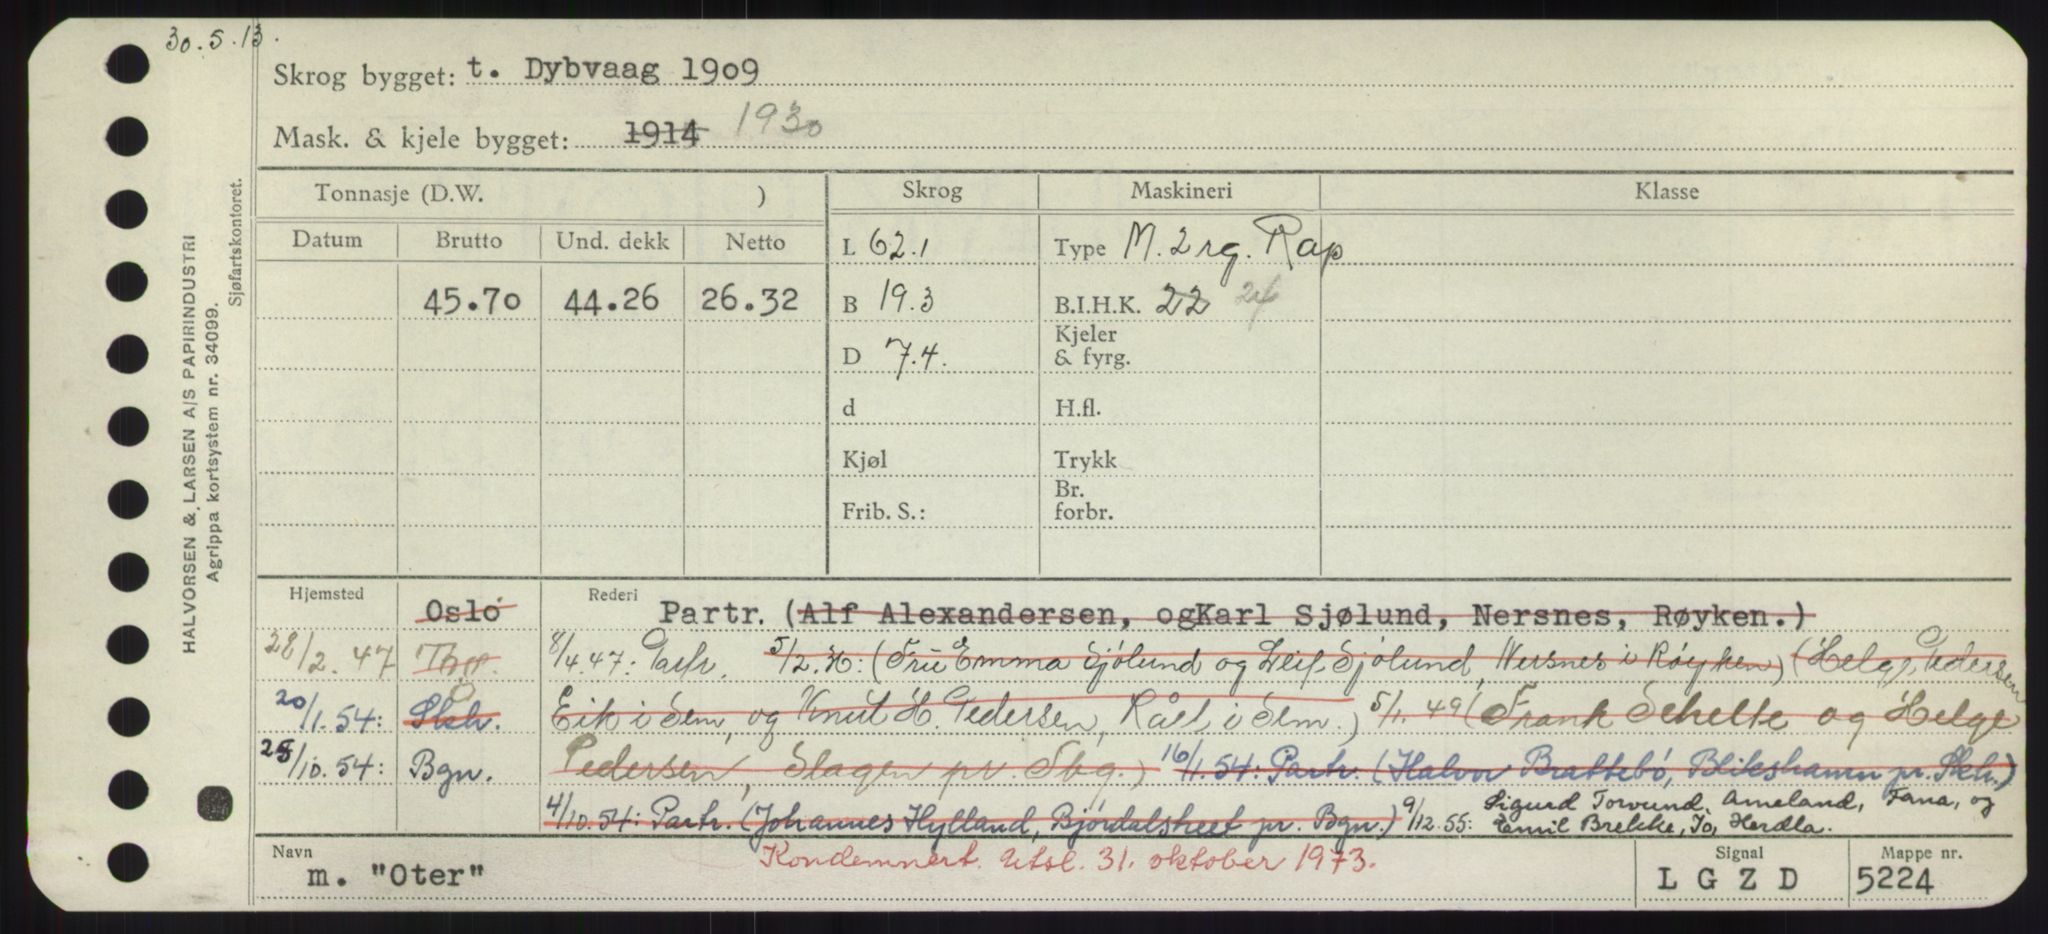 30.5.13.
Skrog bygget: t. Dybvaag 1909
Mask. & kjele bygget: 1914 1930
HALVORSEN & LARSEN A/S PAPIRINDUSTRI
Agrippa kortsystem nr. 34099.
Sjøfartskontoret.
Tonnasje (D.W. ) Skrog Maskineri Klasse
Datum Brutto Und. dekk Netto
L 62.1 Type M. 2 rg. Rap
45.70 44.26 26.32 B 19.3 B.I.H.K. 22 24
D 7.4. Kjeler & fyrg.
d H.fl.
Kjøl Trykk
Frib. S.: Br. forbr.
Hjemsted Oslo Rederi Partr. (Alf Alexandersen, ogKarl Sjølund, Nersnes, Røyken.)
28/2.47 8/4.47. Partr. 5/2. (Fru Emma Sjölund og Leif Sjölund, Nersnes i Röyken) (Helge Pedersen
20/1.54: Skh. Eik i Sem, og Knut H. Pedersen, Råel i Sem.) 5/1.49 (Frank Schelte og Helge
25/10.54: Bgn. Pedersen, Slagen pr. Tbg.) 16/1.54: Partr. (Halvor Brattebö, Blikshamn pr. Skh.)
4/10.54: Partr. (Johannes Hylland, Björdalstreet pr. Bgn.) 9/12.55: Sigurd Torvund, Ameland, Fana, og
Emil Brekke, Io, Herdla.
Navn m. "Oter" Kondemnert. Utsl. 31. oktober 1973. Signal L G Z D Mappe nr. 5224